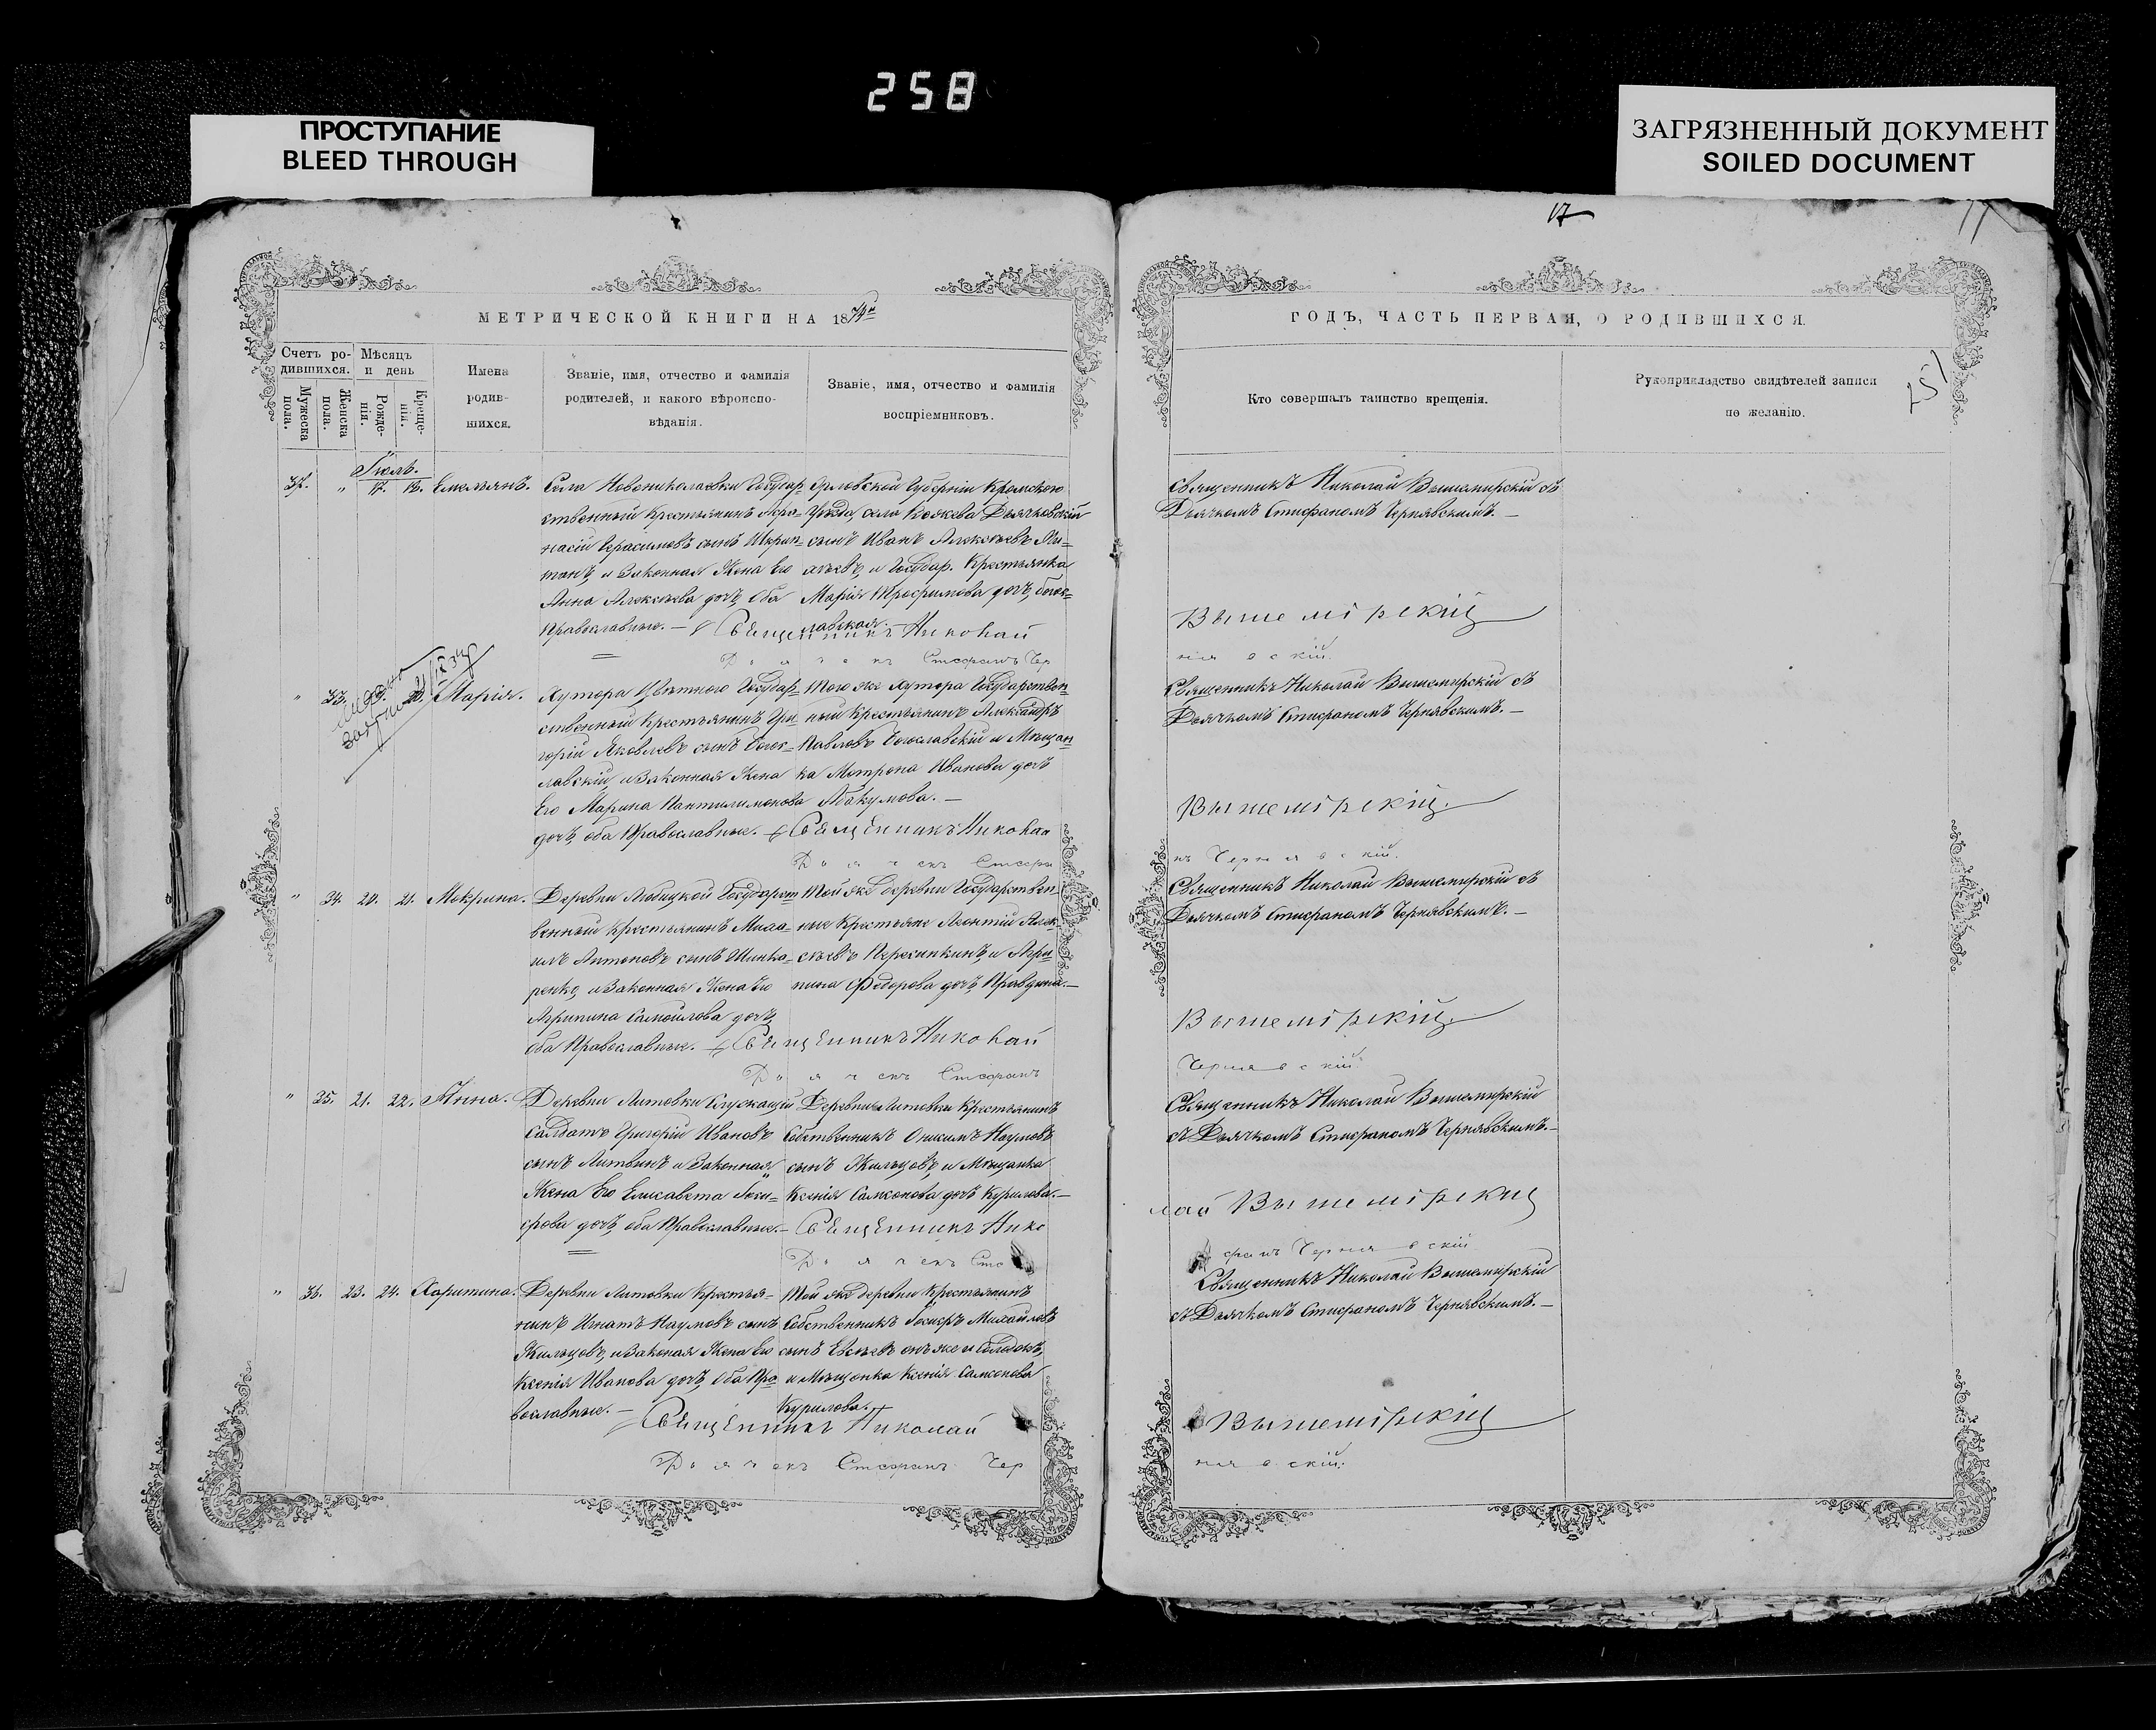 258
ПРОСТУПАНИЕ
BLEED THROUGH
ЗАГРЯЗНЕННЫЙ ДОКУМЕНТ
SOILED DOCUMENT
17
МЕТРИЧЕСКОЙ КНИГИ НА 1874й
Счетъ ро-
дившихся.
Мужеска пола.
Женска пола.
Мѣсяцъ
и день
Рожде-
нія.
Креще-
нія.
Имена
родив-
шихся.
Званіе, имя, отчество и фамилія
родителей, и какого вѣроиспо-
вѣданія.
Званіе, имя, отчество и фамилія
воспріемниковъ.
Іюль.
37. " 17. 18. Емельянъ.
Села Новониколаевки Государ-
ственный Крестьянинъ
Герасимовъ сынъ
и Законная Жена Его
Анна Алексѣева дочь, Оба
Православные. —
Орловской Губерніи Кромскаго
Уѣзда, села
сынъ Иванъ Алексѣевъ
и Государ. Крестьянка
Марія Трофимова дочь,
Священникъ Николай
Дьячекъ Стефанъ Чер
" 33. 20. Марія.
Хутора Государ-
ственный Крестьянинъ Гри
горій Яковлевъ сынъ Богос-
лавскій, и Законная Жена
Его Марина Пантилимонова
дочь, оба Православные.
Того же Хутора Государствен
ный Крестьянинъ Александръ
Павловъ Богославскій и Мѣщан
ка Матрона Иванова дочь
Абакумова. —
Священникъ Николай
Дьячекъ Стефа
" 34. 20. 21. Мокрина.
Деревни Государст
венный Крестьянинъ Миха-
илъ Антоновъ сынъ Шинка-
ренко, и Законная Жена Его
Агрипина Самойлова дочь,
оба Православные.
Той же деревни Государствен
ные Крестьяне Леонтій Алек-
сѣевъ и Агри
пина Федорова дочь,
Священникъ Николай
Дьячекъ Стефанъ
" 35. 21. 22. Анна.
Деревни Литовки
Салдатъ Григорій Ивановъ
сынъ Литвинъ и Законная
Жена Его Елисавета
дочь, оба Православные. —
Деревни Литовки Крестьянинъ
Собственникъ Онисимъ Наумовъ
сынъ Жильцовъ, и Мѣщанка
Ксенія Самсонова дочь Курилова. —
Священникъ Нико
Дьячекъ Сте
" 36. 23. 24. Харитина.
Деревни Литовки Крестья-
нинъ Игнатъ Наумовъ сынъ
Жильцовъ, и Законая Жена Его
Ксенія Иванова дочь, Оба Пра
вославные. —
Той же деревни Крестьянинъ
Собственникъ Михайловъ
сынъ
и Мѣщанка Ксенія Самсонова
Курилова. —
Священникъ Николай
Дьячекъ Стефанъ Чер
ГОДЪ, ЧАСТЬ ПЕРВАЯ, О РОДИВШИХСЯ.
Кто совершалъ таинство крещенія.
Рукоприкладство свидѣтелей записи
по желанію.
Священникъ Николай Вышемирскій съ
Дьячкомъ Стефаномъ Чернявскимъ. —
Вышемірскій
нявскій.
Священникъ Николай Вышемирскій съ
Дьячкомъ Стефаномъ Чернявскимъ. —
Вышемірскій.
нъ Чернявскій.
Священникъ Николай Вышемирскій съ
Дьячкомъ Стефаномъ Чернявскимъ. —
Вышемірскій.
Чернявскій.
Священникъ Николай Вышемирскій
съ Дьячкомъ Стефаномъ Чернявскимъ. —
лай Вышемірскій
фанъ Чернявскій
Священникъ Николай Вышемирскій
съ Дьячкомъ Стефаномъ Чернявскимъ. —
Вышемірскій
нявскій.